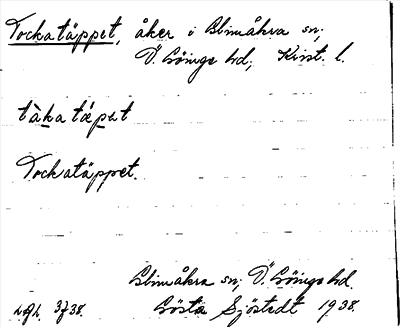 Tockatäppet, åker i Glimåkra sn;
Ö. Göinge hd; Krist. l.
tàka tǽpat
Tockatäppet.
Glimåkra sn; Ö. Göinge hd.
Gösta Sjöstedt 1938.